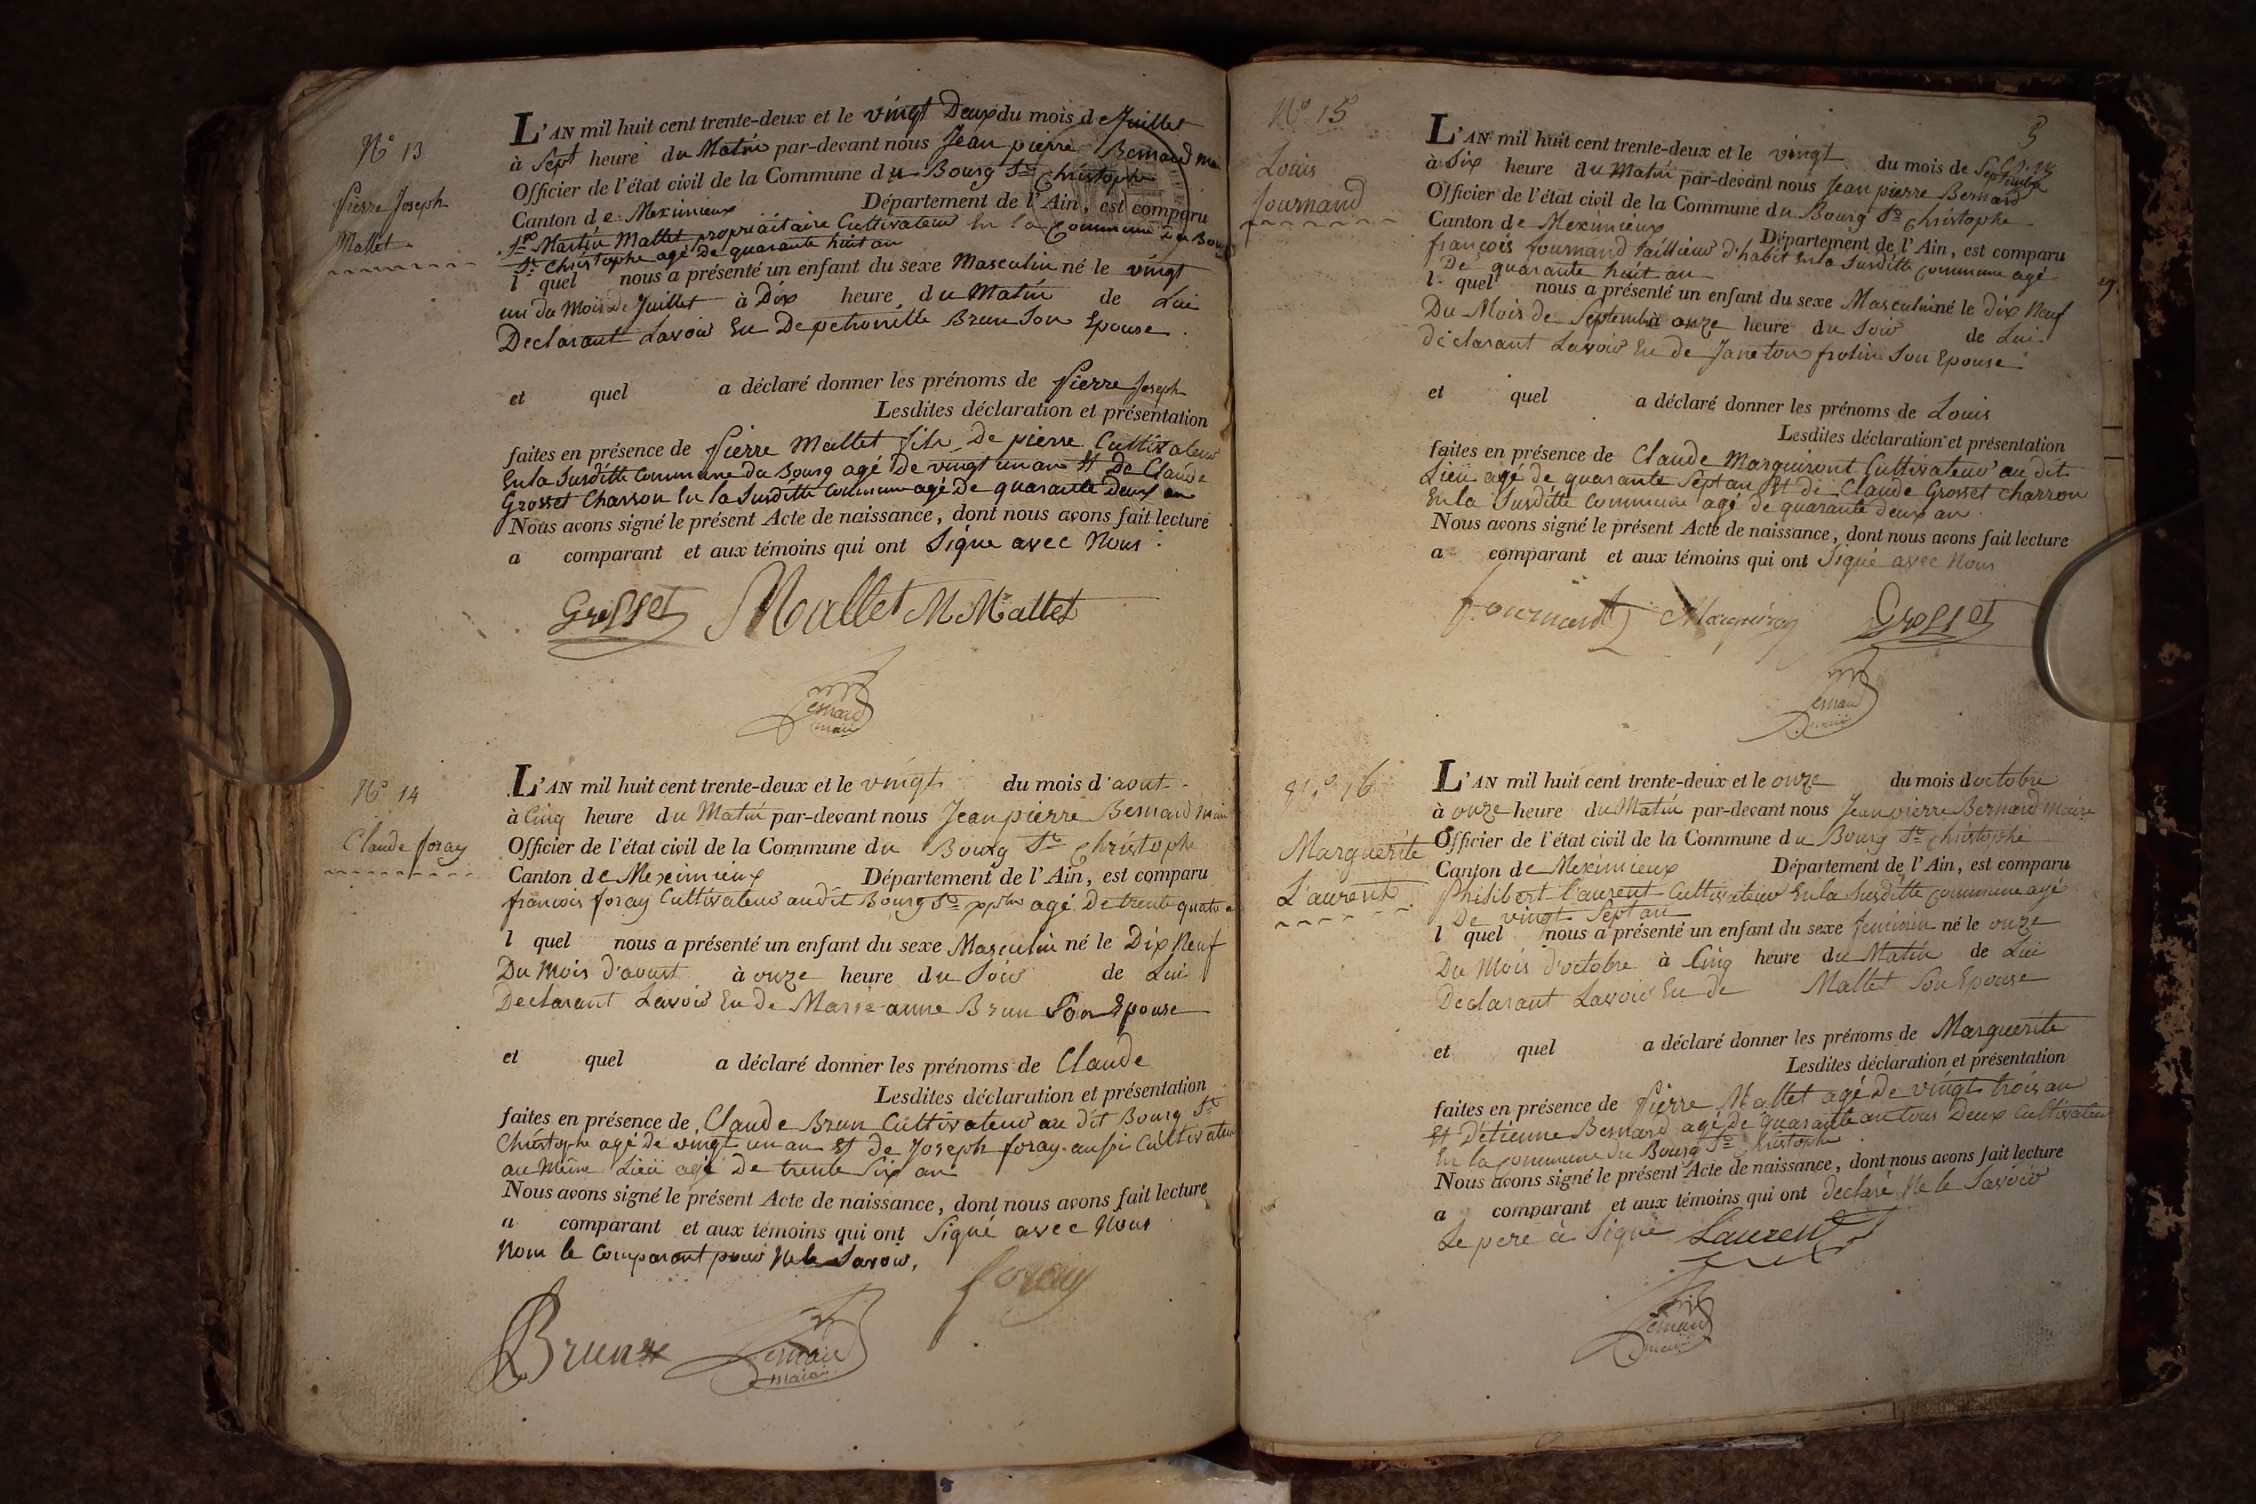 N° 13
Pierre Joseph
Mallet
L'AN mil huit cent trente-deux et le vingt Deux du mois de Juillet
à Sept heure du Matin par-devant nous Jean pierre Bernard
Officier de l'état civil de la Commune du Bourg St Christophe
Canton de Meximieux Département de l'Ain, est comparu
Martin Mallet propriaitaire Cultivateur En la Commune du Bourg
St Christophe agé De quarante huit an
l quel nous a présenté un enfant du sexe Masculin né le vingt
un du Mois De Juillet à Dix heure du Matin de Lui
Declarant Lavoir Eu De petronille Brun Son Epouse
et quel a déclaré donner les prénoms de Pierre Joseph
Lesdites déclaration et présentation
faites en présence de Pierre Mallet fils De pierre Cultivateur
En la Susditte Commune du Bourg agé De vingt un an Et De Claude
Grosset Charron En la Susditte Commune agé De quarante Deux an
Nous avons signé le présent Acte de naissance, dont nous avons fait lecture
a comparant et aux témoins qui ont Signe avec Nous
Grosset Mallet M Mallet
Bernard
maire
N° 14
Claude foray
L'AN mil huit cent trente-deux et le vingt du mois d'aout
à Cinq heure du Matin par-devant nous Jean pierre Bernard Maire
Officier de l'état civil de la Commune du Bourg St Christophe
Canton de Meximieux Département de l'Ain, est comparu
francois foray Cultivateur audit Bourg St xpshe agé De trente quatre a
l quel nous a présenté un enfant du sexe Masculin né le Dix Neuf
Du Mois d'aoust à onze heure du Soir de Lui
Declarant Lavoir Eu de Marie anne Brun Son Epouse
et quel a déclaré donner les prénoms de Claude
Lesdites déclaration et présentation
faites en présence de Claude Brun Cultivateur au dit Bourg St
Christophe agé De vingt un an Et de Joseph foray aussi Cultivateur
au Même Lieu agé De trente Six an
Nous avons signé le présent Acte de naissance, dont nous avons fait lecture
a comparant et aux témoins qui ont Signé avec Nous
Nom le Comparant pour Ne le Savoir.
foray
Brun Bernard
maire
N° 15
Louis
fournand
5
L'AN mil huit cent trente-deux et le vingt du mois de Septembre
à Six heure du Matin par-devant nous Jean pierre Bernard
Officier de l'état civil de la Commune du Bourg St Christophe
Canton de Meximieux Département de l'Ain, est comparu
françois fournand tailleur d'habit En la Susditte commune agé
De quarante huit an
l quel nous a présenté un enfant du sexe Masculin né le dix Neuf
Du Mois de Septembre à onze heure du Soir de Lui
déclarant Lavoir Eu de Janeton frolin Son Epouse
et quel a déclaré donner les prénoms de Louis
Lesdites déclaration et présentation
faites en présence de Claude Marguiront Cultivateur au dit
Lieu agé de quarante Sept an Et de Claude Grosset charron
En la Susditte Commune agé de quarante deux an
Nous avons signé le présent Acte de naissance, dont nous avons fait lecture
a comparant et aux témoins qui ont Signé avec Nous
fournand Grosset
Bernard
maire
N° 16
Marguerite
L'aurent
L'AN mil huit cent trente-deux et le onze du mois doctobre
à onze heure du Matin par-devant nous Jean pierre Bernard Maire
Officier de l'état civil de la Commune du Bourg St Christophe
Canton de Meximieux Département de l'Ain, est comparu
Philibert l'aurent Cultivateur En la Susditte Commune agé
De vingt Sept an
l quel nous a présenté un enfant du sexe feminin né le onze
Du Mois d'octobre à Cinq heure du Matin de Lui
Declarant Lavoir Eu de Mallet Son Epouse
et quel a déclaré donner les prénoms de Marguerite
Lesdites déclaration et présentation
faites en présence de Pierre Mallet agé De vingt trois an
Et D'etienne Bernard agé De Quarante an tous Deux Cultivateur
En la Commune du Bourg St Christophe
Nous avons signé le présent Acte de naissance, dont nous avons fait lecture
a comparant et aux témoins qui ont declaré Ne le Savoir
Le pere à Signe Laurent
Bernard
maire